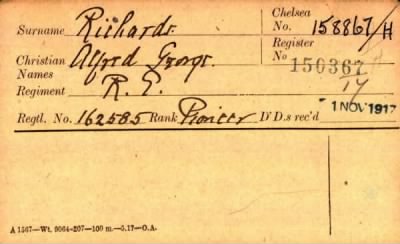 Surname Richards. Chelsea No. 158867/H
Christian Names Alfred George. Register No 150367
Regiment R. E. 17
Regtl. No. 162585 Rank Pioneer D'D.s rec'd 1 NOV 1917
A 1567—Wt. 9064-207—100 m.—5.17—O.A.